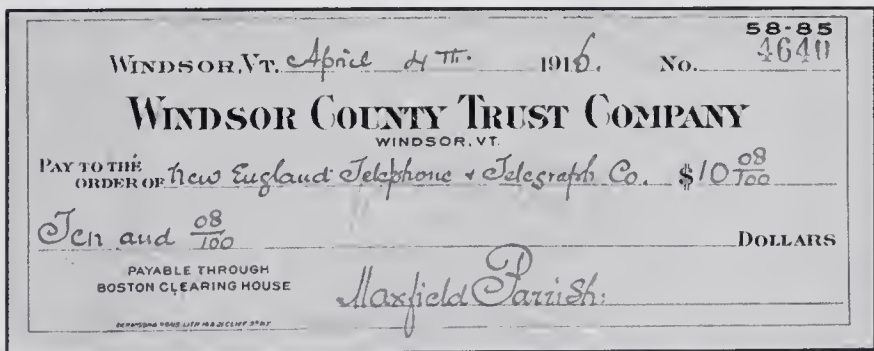 58-85
WINDSOR, VT. April 4TH. 1916. No. 4640
WINDSOR COUNTY TRUST COMPANY
WINDSOR, VT.
PAY TO THE ORDER OF New England Telephone & Telegraph Co. $10 08/100
Ten and 08/100 DOLLARS
PAYABLE THROUGH
BOSTON CLEARING HOUSE
Maxfield Parrish.